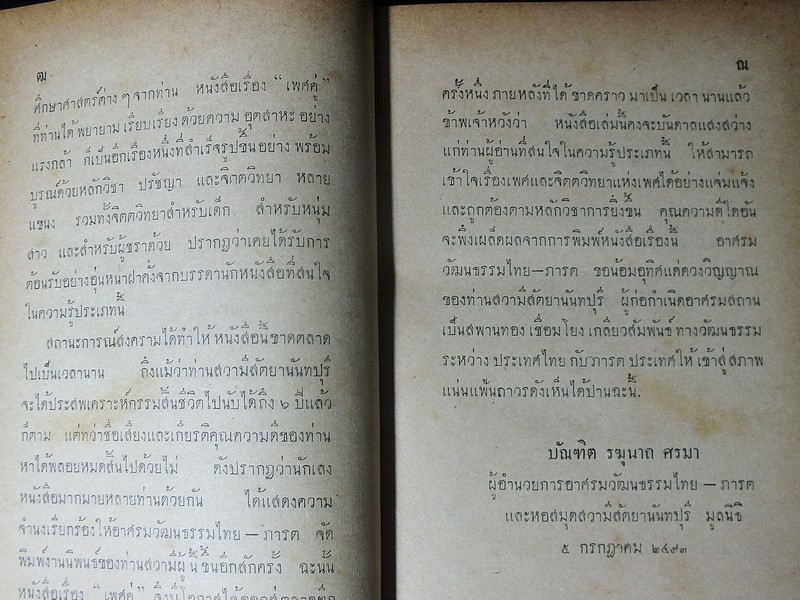 ฒ
ศึกษาศาสตร์ต่าง ๆ จากท่าน หนังสือเรื่อง “เพศคู่”
ที่ท่านได้ พยายาม เรียบเรียง ด้วยความ อุตสาหะ อย่าง
แรงกล้า ก็เป็นอีกเรื่องหนึ่งที่สำเร็จรูปขึ้นอย่าง พร้อม
บูรณ์ด้วยหลักวิชา ปรัชญา และจิตตวิทยา หลาย
แขนง รวมทั้งจิตตวิทยาสำหรับเด็ก สำหรับหนุ่ม
สาว และสำหรับผู้ชราด้วย ปรากฏว่าเคยได้รับการ
ต้อนรับอย่างอุ่นหนาฝาคั่งจากบรรดานักหนังสือที่สนใจ
ในความรู้ประเภทนี้
สถานะการณ์สงครามได้ทำให้ หนังสือนี้ขาดตลาด
ไปเป็นเวลานาน ถึงแม้ว่าท่านสวามีสัตยานันทปุรี
จะได้ประสพเคราะห์กรรมสิ้นชีวิตไปนับได้ถึง ๖ ปีแล้ว
ก็ตาม แต่ทว่าชื่อเสียงและเกียรติคุณความดีของท่าน
หาได้พลอยหมดสิ้นไปด้วยไม่ ดังปรากฏว่านักเลง
หนังสือมากมายหลายท่านด้วยกัน ได้แสดงความ
จำนงเรียกร้องให้อาศรมวัฒนธรรมไทย—ภารต จัด
พิมพ์งานนิพนธ์ของท่านสวามีผู้นี้ขึ้นอีกสักครั้ง ฉะนั้น
หนังสือเรื่อง “เพศคู่” จึงมีโอกาสได้
ณ
ครั้งหนึ่ง ภายหลังที่ได้ ขาดคราว มาเป็น เวลา นานแล้ว
ข้าพเจ้าหวังว่า หนังสือเล่มนี้คงจะบันดาลแสงสว่าง
แก่ท่านผู้อ่านที่สนใจในความรู้ประเภทนี้ ให้สามารถ
เข้าใจเรื่องเพศและจิตตวิทยาแห่งเพศได้อย่างแจ่มแจ้ง
และถูกต้องตามหลักวิชาการยิ่งขึ้น คุณความดีใดอัน
จะพึงเผล็ดผลจากการพิมพ์หนังสือเรื่องนี้ อาศรม
วัฒนธรรมไทย—ภารต ขอน้อมอุทิศแด่ดวงวิญญาณ
ของท่านสวามีสัตยานันทปุรี ผู้ก่อกำเนิดอาศรมสถาน
เป็นสพานทอง เชื่อมโยง เกลียวสัมพันธ์ ทางวัฒนธรรม
ระหว่าง ประเทศไทย กับ ภารต ประเทศให้ เข้าสู่ สภาพ
แน่นแฟ้นถาวรดังเห็นได้ปานฉะนี้.
บัณฑิต รฆุนาถ ศรมา
ผู้อำนวยการอาศรมวัฒนธรรมไทย — ภารต
และหอสมุดสวามีสัตยานันทปุรี มูลนิธิ
๕ กรกฎาคม ๒๔๙๓